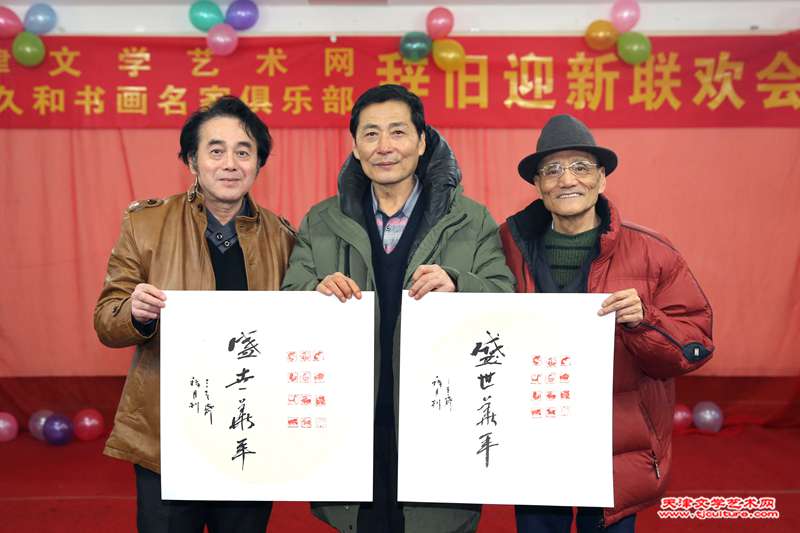 津文学艺术网
久和书画名家俱乐部
辞旧迎新联欢会
盛世华年
盛世华年
天津文学艺术网
www.tjculture.com